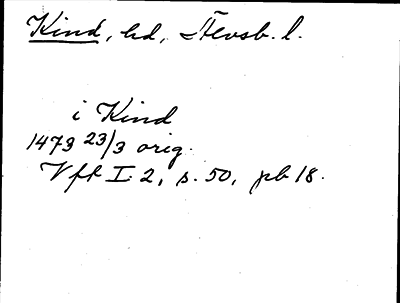 Kind, hd, Älvsb. l.
i Kind
1473 23/3 orig.
Vfk I:2, s. 50, pb 18.